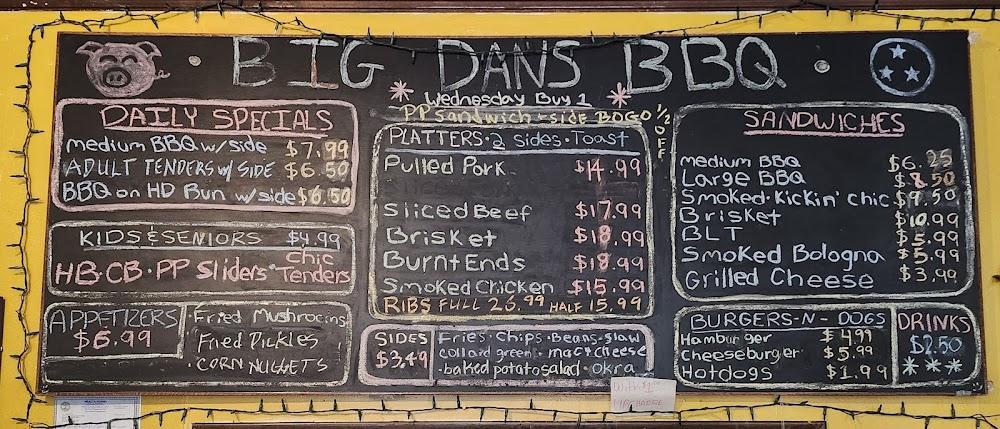 BIG DANS BBQ
DAILY SPECIALS
medium BBQ w/side $7.99
ADULT TENDERS w/ SIDE $6.50
BBQ on HD Bun w/side $6.50
KIDS & SENIORS $4.99
HB · CB · PP Sliders · Chic Tenders
APPETIZERS
$6.99
Fried Mushrooms
Fried Pickles
CORN NUGGETS
Wednesday Buy 1
PP Sandwich + side BOGO 1/2 OFF
PLATTERS · 2 sides · Toast
Pulled Pork $14.99
Sliced Beef $17.99
Brisket $18.99
Burnt Ends $18.99
Smoked Chicken $15.99
RIBS FULL 26.99 HALF 15.99
SIDES
$3.49
Fries · Chips · Beans · Slaw
collard green · mac + cheese
· baked potato salad · Okra
SANDWICHES
medium BBQ $6.25
Large BBQ $8.50
Smoked · Kickin' chic $9.50
Brisket $10.99
BLT $5.99
Smoked Bologna $5.99
Grilled Cheese $3.99
BURGERS - N - DOGS
Hamburger $4.99
Cheeseburger $5.99
Hotdogs $1.99
DRINKS
$2.50